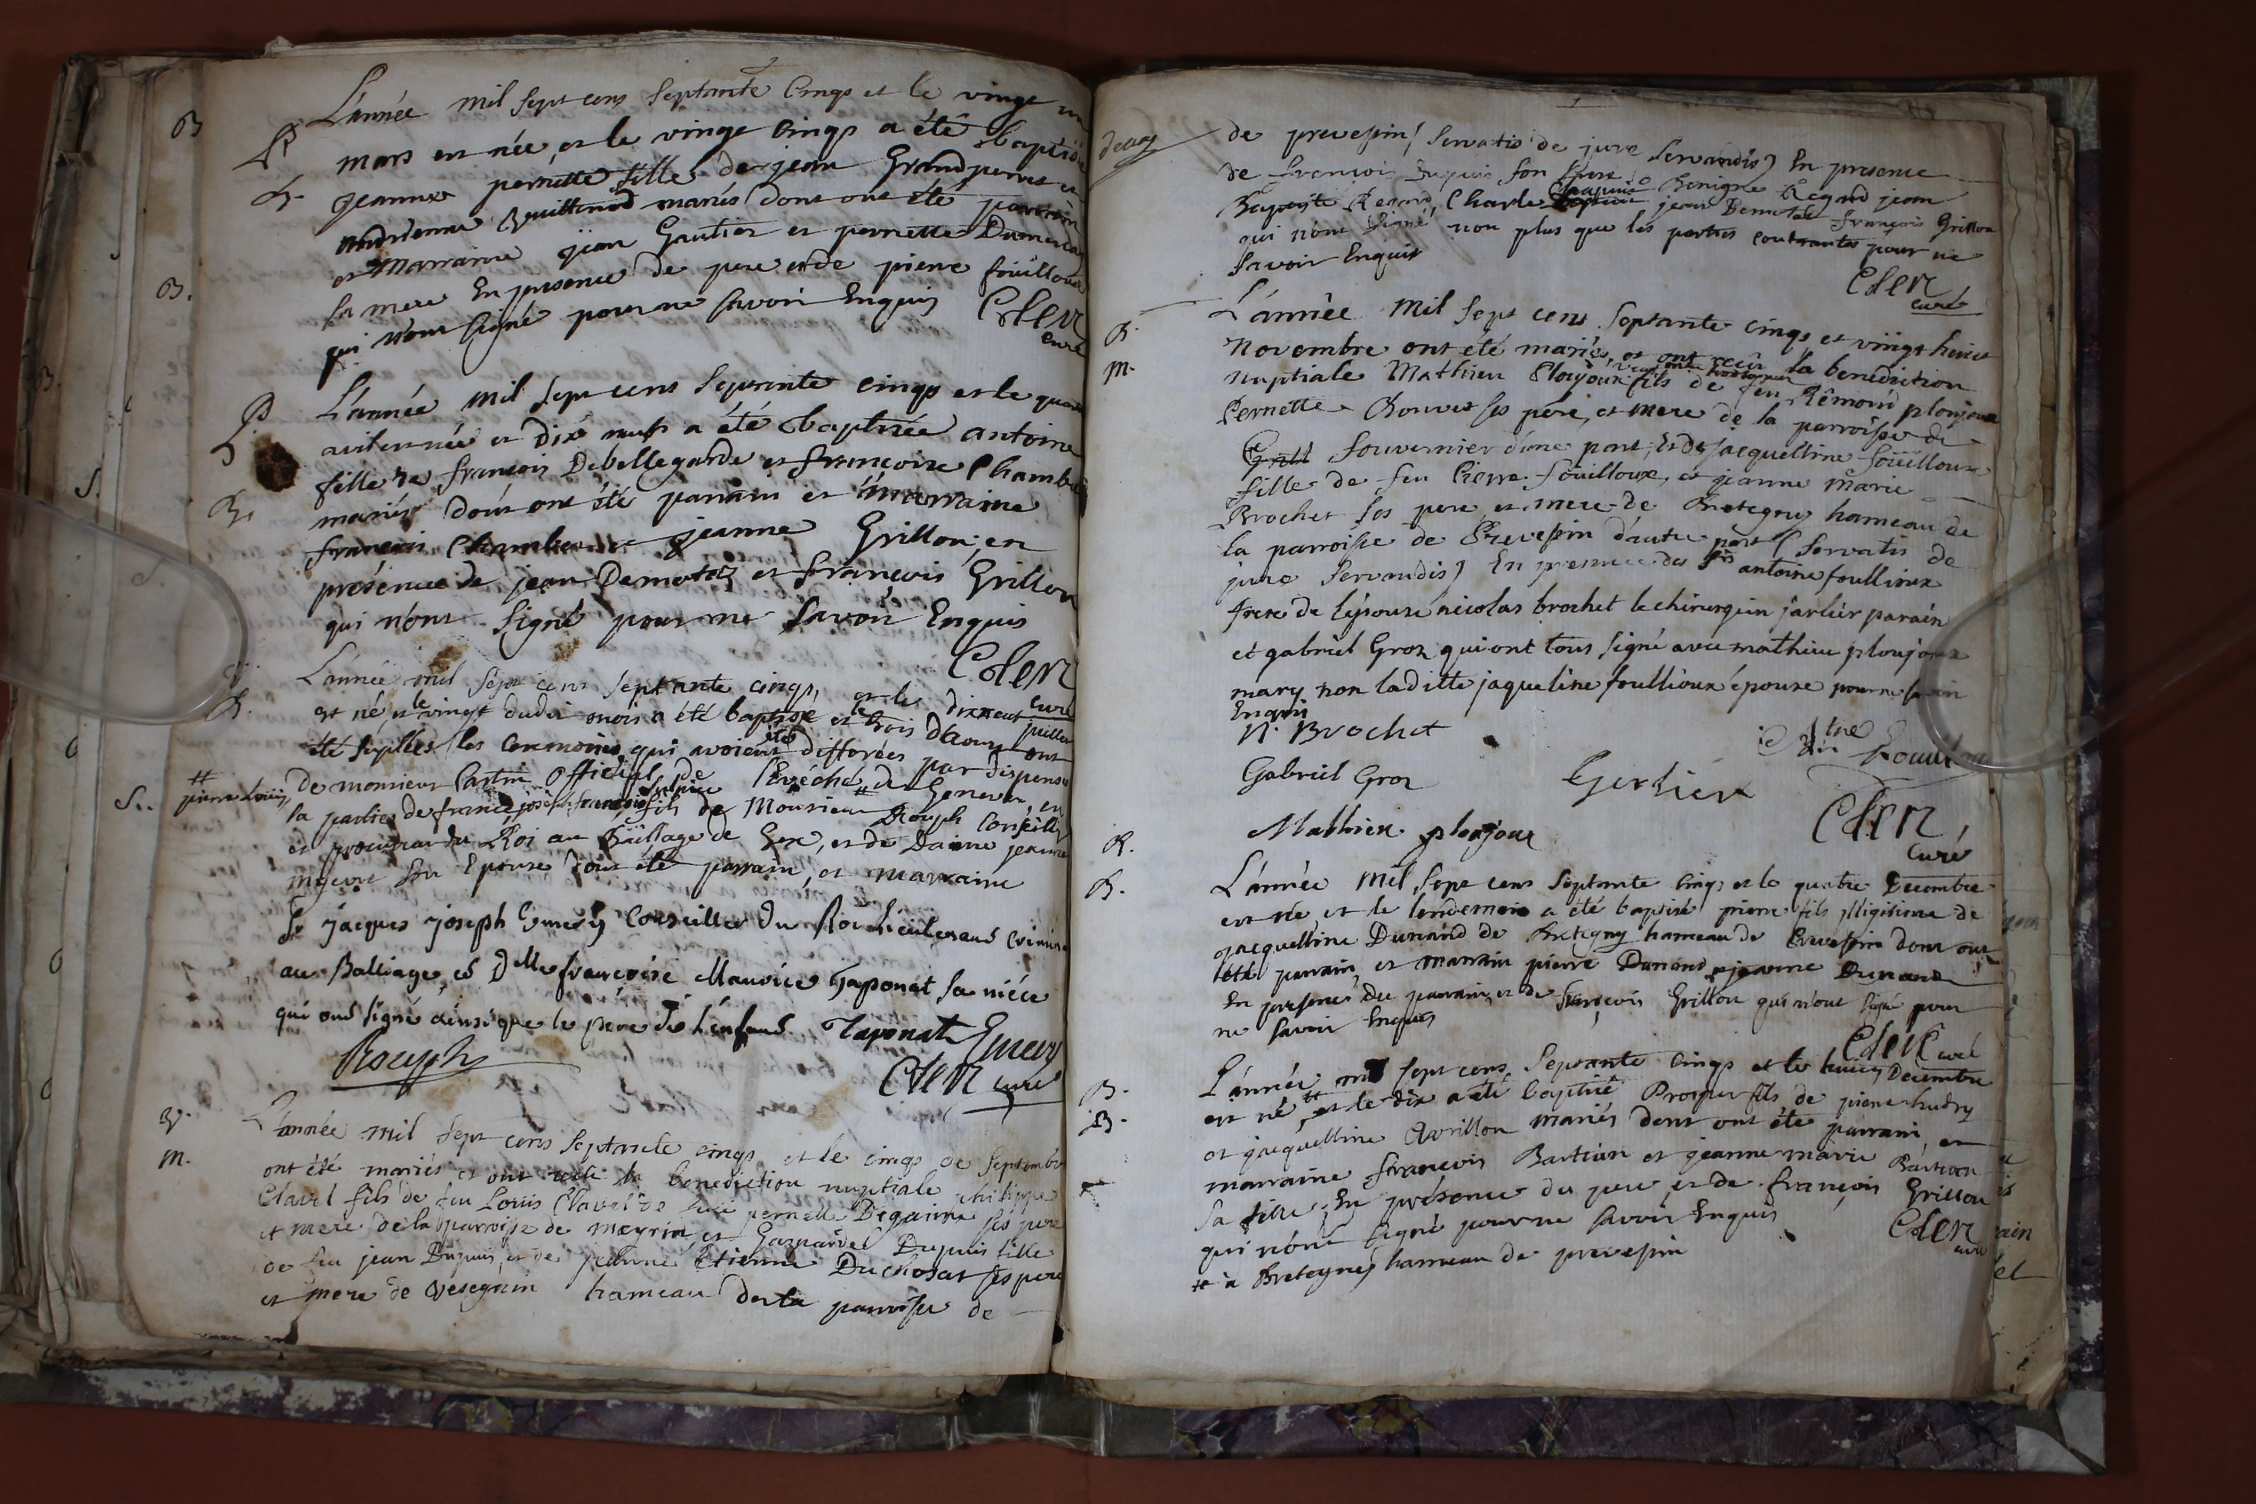 L'année mil sept cens septante cinqs et le vingt un
mars est née, et le vingt cinqs a été baptisée
jeanne pernette fille de jean Grandperret et
mariés dont ont été parrain
et Marraine jean Gautier et pernette
la mere En presence de pere et de pierre fouilloux
qui n'ont signé pour ne savoir Enquis
Cden
curé
L'année mil sept cens septante cinqs et le quatre
avit est née et dix neuf a été baptisée antoine
fille de françois Debellegarde et françoise Chamb
mariés dont ont été parrain et marraine
françois jeanne Grillon, en
présence de jean Demotaz et françois Grillon
qui n'ont signé pour ne savoir Enquis
Cden
curé
L'année mil sept cens septante cinqs, et le dixneuf juillet
est né et le vingt dudit mois a été baptisé et le trois d'aoust ont
été supplées les Ceremonies qui avoient été differées par dispense
de monsieur official de l'Evéché de Geneve, en
# pierre Louis
la partie de france, joseph françois fils de Monsieur # Rouph Conseiller
et procureur du Roi au Baillage de Gex, et de Dame jeanne
son Epouse dont été parrain, et marraine
Sr jacques joseph Emery Conseiller du Roi lieutenant crimin
au Balliage, et Dlle françoise Maurice Taponat sa niéce
qui ont signé ainsi que le pere de l'enfant. Taponat Emery
Rouph
Cden curé
M.
L'année mil sept cens septante cinqs et le cinqs de septembre
ont été mariés et ont reçu la benediction nuptiale philippe
Clavel fils de feu Louis Clavel et de pernette Degaine ses pere
et mere de la parroisse de meyrin, et Dupuis fille
de feu jean Dupuis, et de jeanne Etienne Duchosat ses pere
et mere de Vesegnin hameau de la parroisse de
de prevessin (servatis de jure servandis) En presence
de françois Dupuis son frere Benigne Regard jean
Baptiste Regard Charle jean Demotaz françois Grillon
qui n'ont signé non plus que les parties contractantes pour ne
savoir Enquis
Cden
curé
L'année mil sept cens septante cinqs et vingt huit
M.
Novembre ont été mariés, et ont reçu la benediction
nuptiale Mathieu Plonjoux fils de feu Rémond plonjoux
Pernette Bouvet ses pére, et mere de la parroisse de
Souvernier d'une part; Et de jacqueline fouilloux
fille de feu Pierre fouilloux, et jeanne marie
Brochet ses pere et mere de Bretegny hameau de
la parroisse de Prevessin d'autre part (servatis de
jure servandis) En presence des Srs antoine foullioux
frere de l'épouse nicolas brochet le chirurgien jarlier parain
et gabriel Groz qui ont tous signé avec mathieu plonjoux
mary non la ditte jaqueline foullioux épouse pour ne savoir
Enquis
N. Brochet
Gabriel Groz
Gerlier
Mathieu plonjoux
Cden
curé
B.
L'année mil sept cens septante cinqs et le quatre Decembre
est né, et le lendemain a été baptisé pierre fils illigitime de
jacqueline Dunand de Bretegny hameau de Prevessin dont ont
été parrain, et marraine pierre Dunand et jeanne Dunand
En presence du parrain, et de françois Grillon qui n'ont signé pour
ne savoir Enquis
Cden curé
B.
L'année mil sept cens septante cinqs et le huit Decembre
est né # et le dix a été baptisé Prosper fils de pierre hudry
et jacqueline Avrillon mariés dont ont été parrain, et
marraine françois Bastian et jeanne marie Bastian
sa fille, En présence du pere, et de françois Grillon
qui n'ont signé pour ne savoir Enquis
Cden
curé
# à Bretegny hameau de prevessin